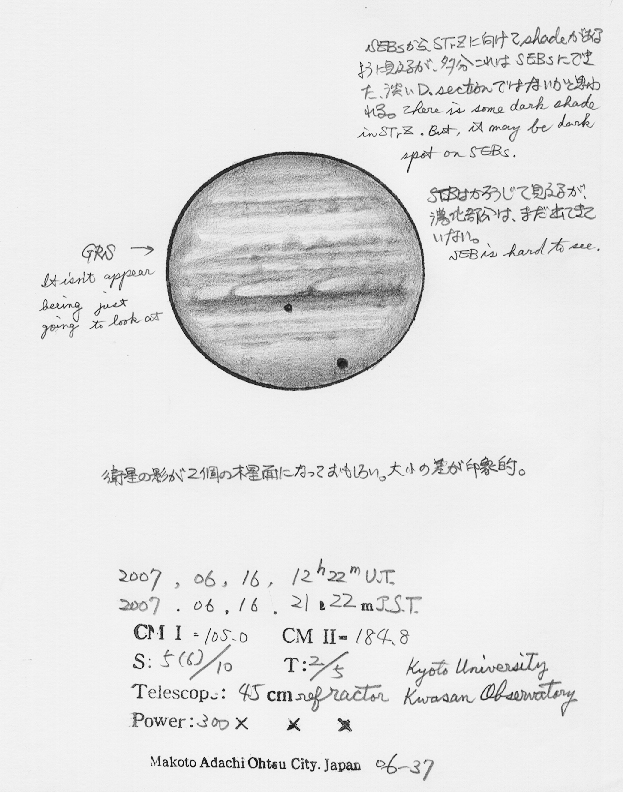 SEBsから、STrZに向けてshadeがある
ように見えるが、多分これはSEBsにでき
た、淡いD. sectionではないかと思わ
れる。There is some dark shade
in STrZ. But, it may be dark
spot on SEBs.
SEBはかろうじて見えるが、
濃化部分は、まだ出てきて
いない。
SEB is hard to see.
GRS →
It isn't appear
being just
going to look at
衛星の影が2個の木星面になっておもしろい。大小の差が印象的。
2007 , 06 , 16 , 12h22m U.T.
2007 . 06 . 16 . 21h22m J.S.T.
CM I = 105.0 CM II = 184.8
S: 5(6)/10 T: 2/5 Kyoto University
Telescope: 45 cm refractor Kwasan Observatory
Power: 300× × ×
Makoto Adachi Ohtsu City. Japan 06-37